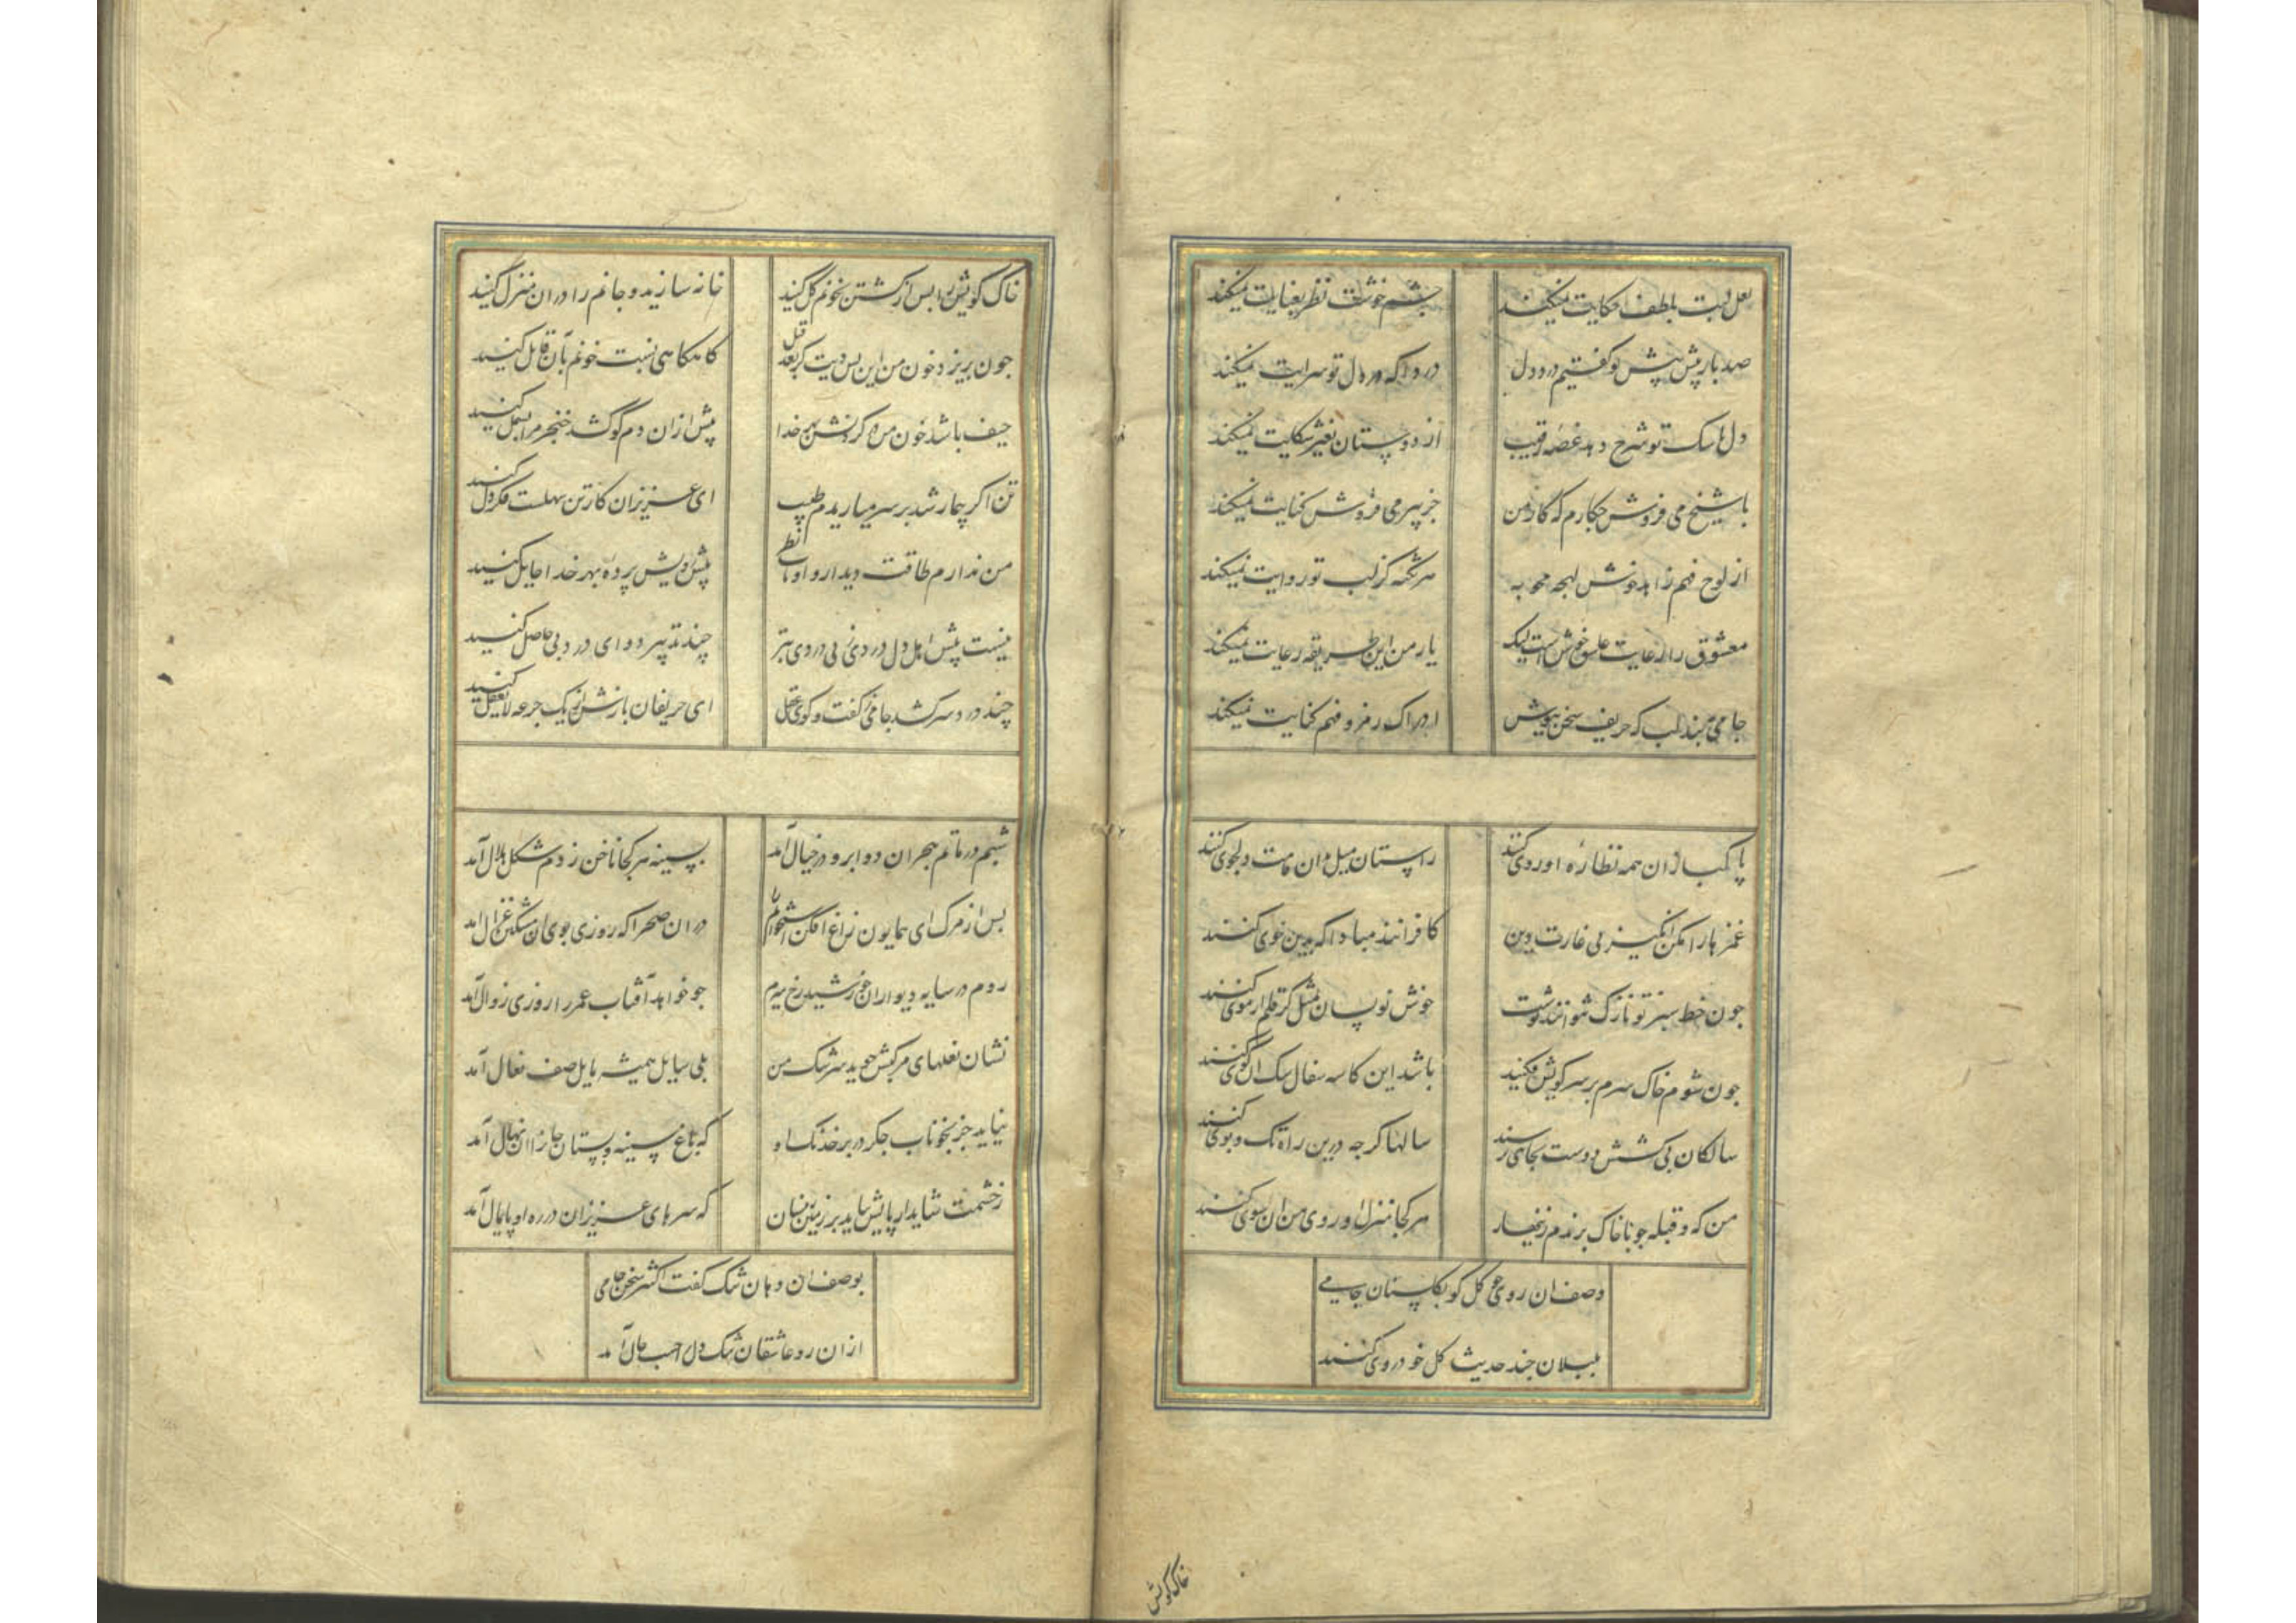 لعل لبت بلطف حکایت نمیکند چشم خوشت نظر بعنایت نمیکند
صد بار پیش پیش تو گفتیم درد دل دردا که در دل تو سرایت نمیکند
دل با سک تو شرح دهد غصه رقیب از دوستان بغیر شکایت نمیکند
با شیخ می فروش چکارم که کار من جز پیر می فروش کفایت نمیکند
از لوح فهم زاهد خوش لهجه محو به هر نکته کز لب تو روایت نمیکند
معشوق را رعایت عاشق خوش است لیک یار من این طریقه رعایت نمیکند
جامی ببند لب که حریف سخن نیوش ادراک رمز و فهم کنایت نمیکند
پاکبازان همه نظاره او روی کنند راستان میل بدان قامت دلجوی کنند
غمزها را مکن انکیز پی غارت دین کافرانند مبادا که بدین خوی کنند
جون خط سبز تو نازک نتوانند نوشت خوش نویسان بمثل کر قلم از موی کنند
جون شوم خاک سرم بر سر کویش فکنید باشد این کاسه سفال سک ان کوی کنند
سالکان بی کشش دوست بجای نرسند سالها کر جه درین راه تک و پوی کنند
من که و قبله جو با خاک برندم زنهار هر کجا منزل او روی من ان سوی کنند
وصف ان روی جو کل کو بکلستان جامی
بلبلان جند حدیث کل خود روی کنند
خاک کویش
خاک کویش را بس از کشتن بخونم کل کنید خانه سازید و جانم را دران منزل کنید
جون بریزد خون من این بس دیت کر بعد قتل کاه کاهی نسبت خونم بآن قاتل کنید
حیف باشد خون من در کردنش بهر خدا پیش ازان دم کو کشد خنجر مرا بسمل کنید
تن اکر بیمار شد بر سر میارید م طبیب ای عزیزان کار تن سهلست فکر دل کنید
من ندارم طاقت دیدار و او تاب نظر پیش رویش پرده بهر خدا حایل کنید
نیست پیش اهل دل دردی ز بی دردی بتر چند تدبیر دوای درد بی حاصل کنید
چند درد سر کشد جامی ز کفت و کوی عقل ای حریفان بازش از یک جرعه لایعقل کنید
شبم در ماتم هجران دو ابرو در خیال آمد بسینه هر کجا ناخن زدم شکل هلال آمد
بس از مرک ای همایون زاغ افکن استخوانم را دران صحرا که روزی بوی ان مشکین غزال امد
روم در سایه دیوار ان خورشید رخ میرم جو خواهد آفتاب عمر را روزی زوال آمد
نشان نعلهای مرکبش جوید سرشک من بلی سایل همیشه مایل صف نعال آمد
نیاید جز بخوناب جکر در بر خدنک او که باغ سینه و بستان جانرا ان نهال آمد
ز خشمت شاید ار پایش نیاید بر زمین زینسان که سرهای عزیزان در ره او پایمال آمد
بوصف ان دهان تنک کفت اکثر سخن جامی
ازان رو عاشقان تنک دل را حسب حال آمد